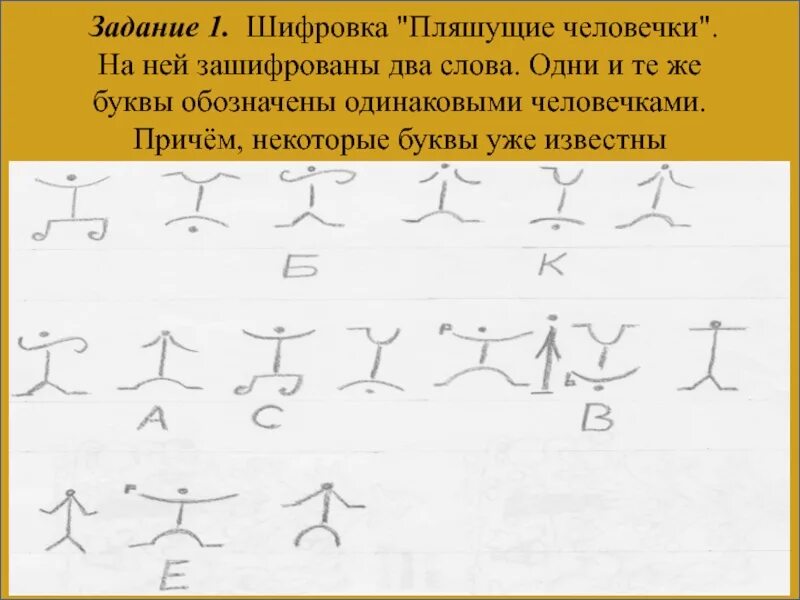 Задание 1. Шифровка "Пляшущие человечки".
На ней зашифрованы два слова. Одни и те же
буквы обозначены одинаковыми человечками.
Причём, некоторые буквы уже известны
Б К
А С В
Е